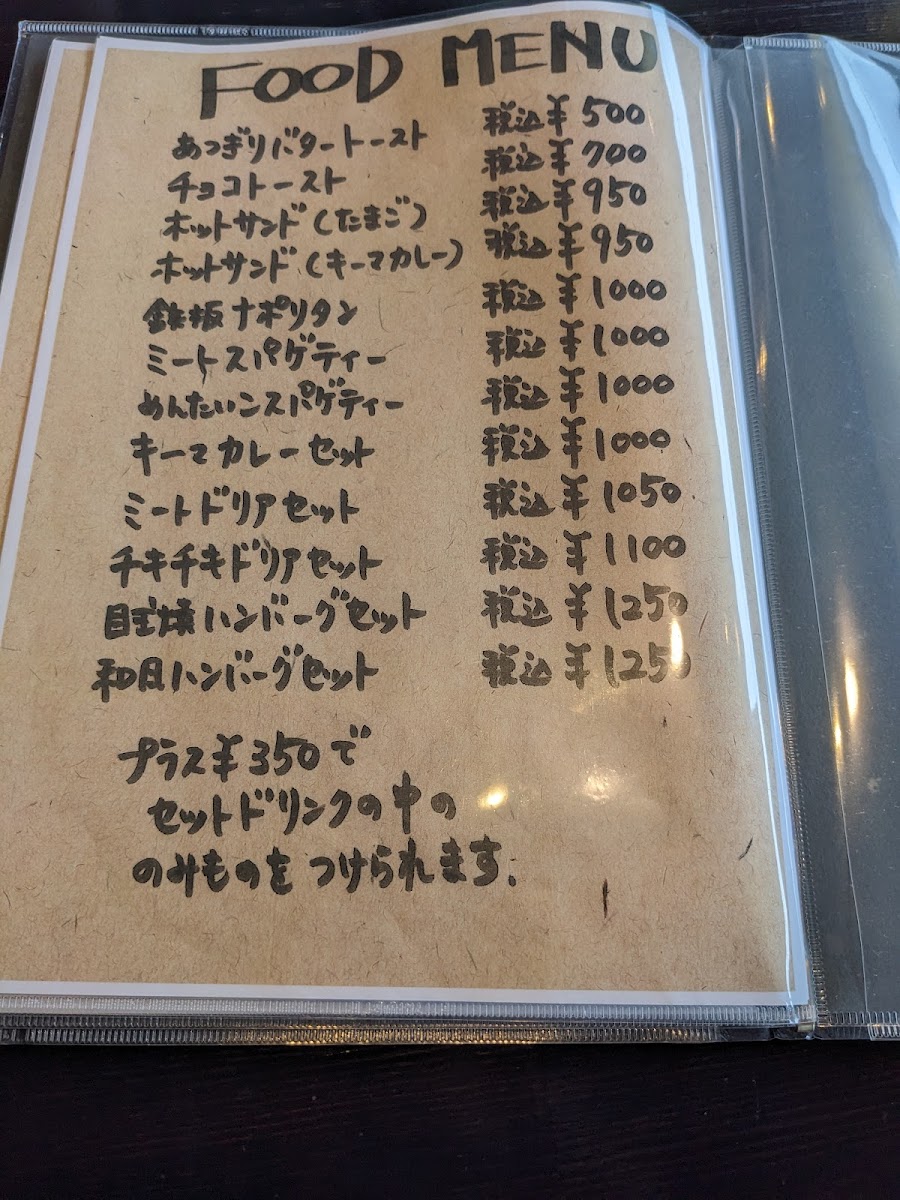 FOOD MENU
あつぎりバタートースト 税込¥500
チョコトースト 税込¥700
ホットサンド(たまご) 税込¥950
ホットサンド(キーマカレー) 税込¥950
鉄板ナポリタン 税込¥1000
ミートスパゲティー 税込¥1000
めんたいこスパゲティー 税込¥1000
キーマカレーセット 税込¥1000
ミートドリアセット 税込¥1050
チキチキドリアセット 税込¥1100
目玉焼ハンバーグセット 税込¥1250
和風ハンバーグセット 税込¥1250
プラス¥350で
セットドリンクの中の
のみものをつけられます.